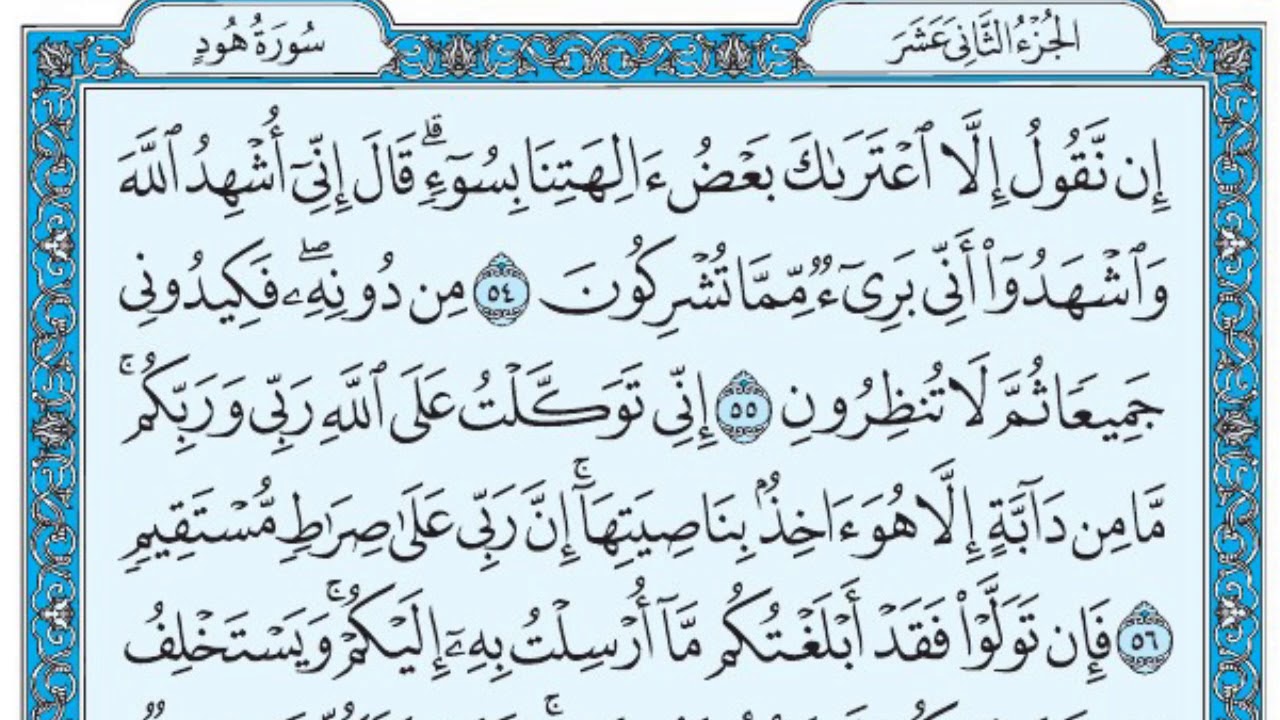 الجُزْءُ الثَّانِي عَشَرَ
سُورَةُ هُودٍ
إِن نَّقُولُ إِلَّا ٱعۡتَرَىٰكَ بَعۡضُ ءَالِهَتِنَا بِسُوٓءٖۗ قَالَ إِنِّيٓ أُشۡهِدُ ٱللَّهَ
وَٱشۡهَدُوٓاْ أَنِّي بَرِيٓءٞ مِّمَّا تُشۡرِكُونَ ٥٤ مِن دُونِهِۦۖ فَكِيدُونِي
جَمِيعٗا ثُمَّ لَا تُنظِرُونِ ٥٥ إِنِّي تَوَكَّلۡتُ عَلَى ٱللَّهِ رَبِّي وَرَبِّكُمۚ
مَّا مِن دَآبَّةٍ إِلَّا هُوَ ءَاخِذُۢ بِنَاصِيَتِهَآۚ إِنَّ رَبِّي عَلَىٰ صِرَٰطٖ مُّسۡتَقِيمٖ
٥٦ فَإِن تَوَلَّوۡاْ فَقَدۡ أَبۡلَغۡتُكُم مَّآ أُرۡسِلۡتُ بِهِۦٓ إِلَيۡكُمۡۚ وَيَسۡتَخۡلِفُ